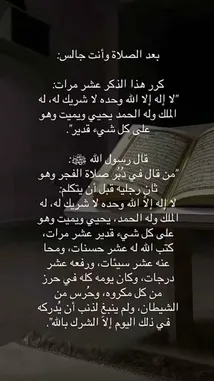 بعد الصلاة وأنت جالس:
كرر هذا الذكر عشر مرات:
"لا إله إلا الله وحده لا شريك له، له
الملك وله الحمد يحيي ويميت وهو
على كل شيء قدير".
قال رسول الله ﷺ:
"من قال في دُبُر صلاة الفجر وهو
ثانٍ رجليه قبل أن يتكلم:
لا إله إلا الله وحده لا شريك له، له
الملك وله الحمد، يحيي ويميت وهو
على كل شيء قدير عشر مرات،
كتب الله له عشر حسنات، ومحا
عنه عشر سيئات، ورفعه عشر
درجات، وكان يومه كله في حرز
من كل مكروه، وحُرس من
الشيطان، ولم ينبغ لذنب أن يُدركه
في ذلك اليوم إلا الشرك بالله".